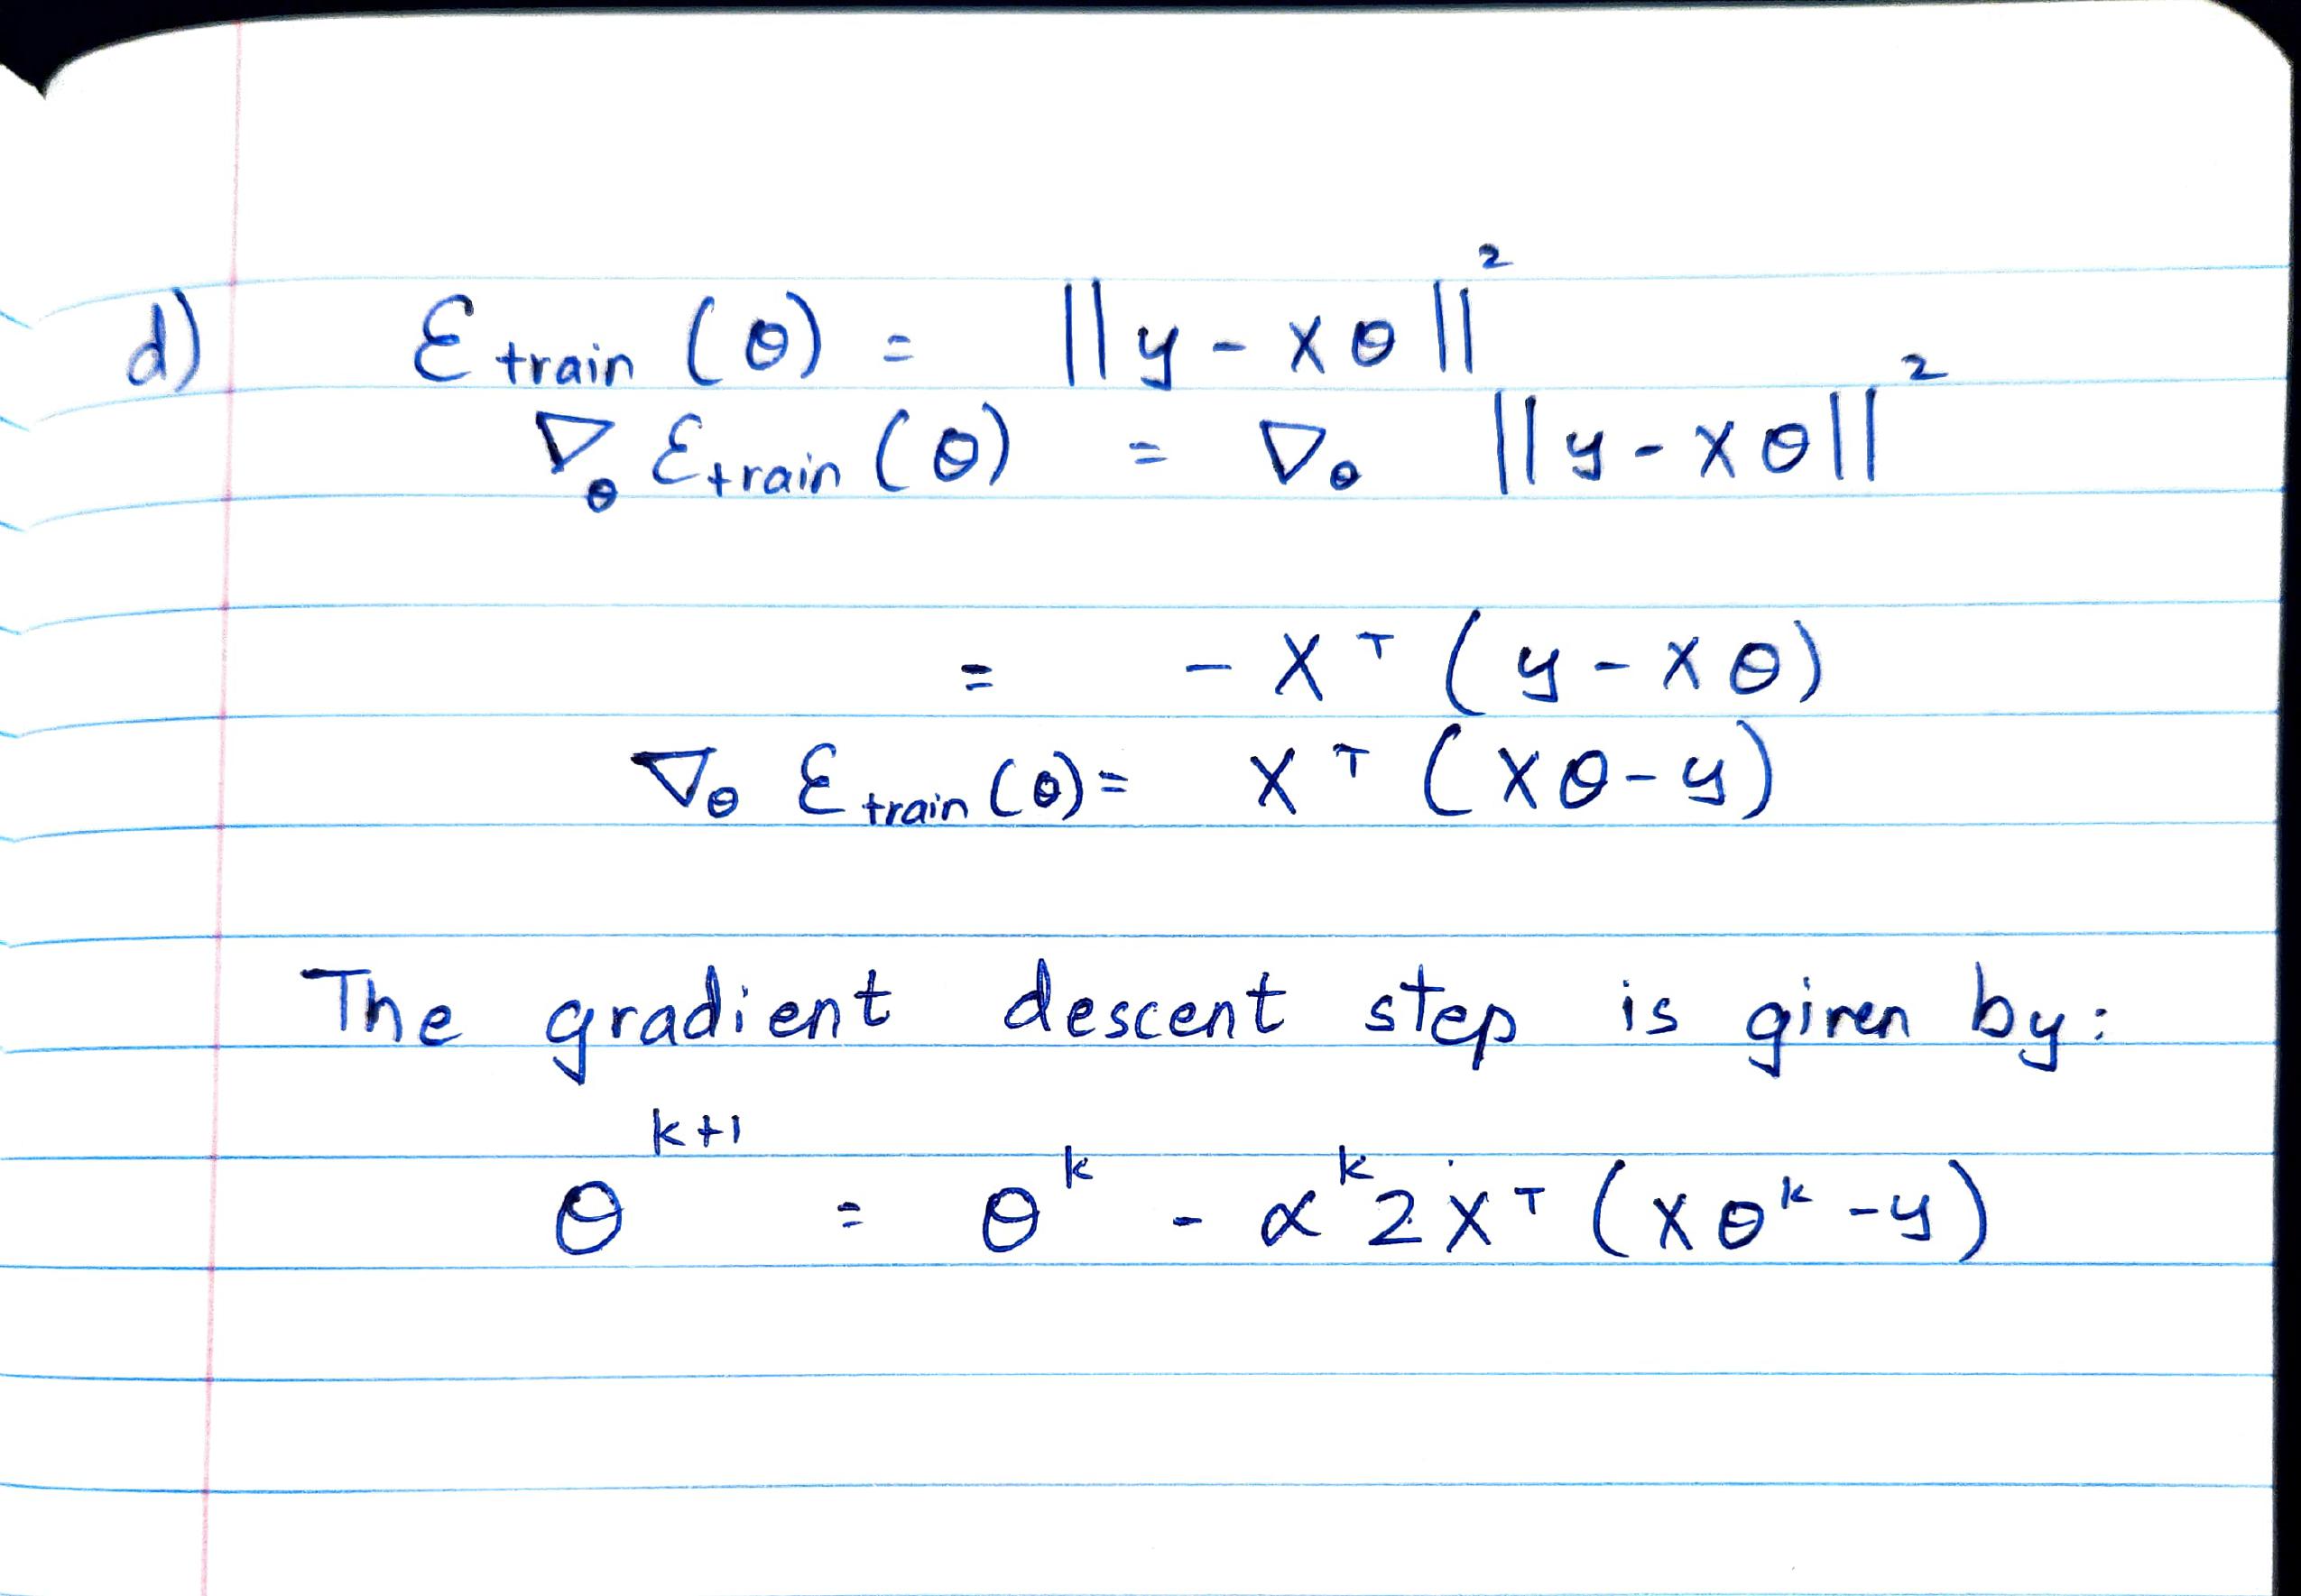 d) Ɛ train (θ) = ||y - xθ||²
∇θ Ɛtrain (θ) = ∇θ ||y - xθ||²
= - Xᵀ (y - xθ)
∇θ Ɛ train (θ) = Xᵀ (Xθ - y)
The gradient descent step is given by:
θᵏ⁺¹ = θᵏ - αᵏ 2 Xᵀ (Xθᵏ - y)